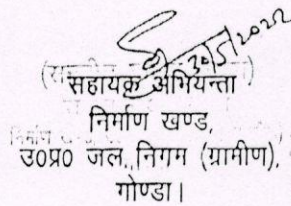 30/5/2022
सहायक अभियन्ता
निर्माण खण्ड,
उ0प्र0 जल निगम (ग्रामीण),
गोण्डा।